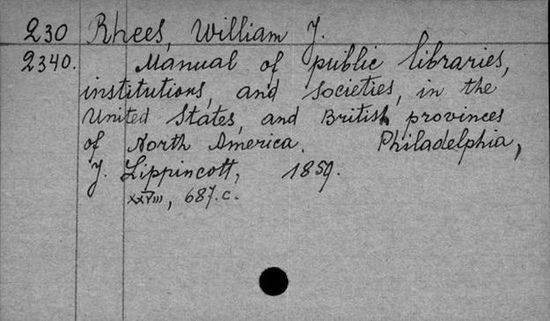 230 Rhees, William J.
2340. Manual of public libraries,
institutions, and societies, in the
United States, and British provinces
of North America. Philadelphia,
J. Lippincott, 1859.
XXVIII, 687.c.